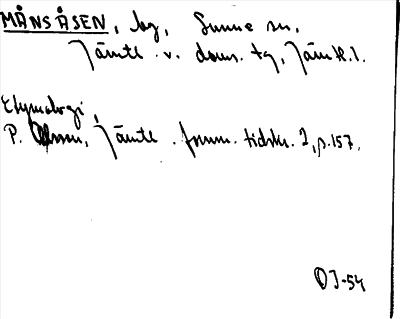 MÅNSÅSEN, by, Sunne sn,
Jämtl. v. doms. tg, Jämtl. l.
Etymologi,
P. Olsson, Jämtl. fornm. tidskr. 2, p. 157.
OJ-54